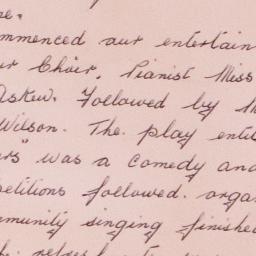 mmenced our entertain
ur Choir. Pianist Miss
Askew. Followed by M
Wilson. The. play entit
rs" was a comedy and
petitions followed. organ
mmunity singing finished